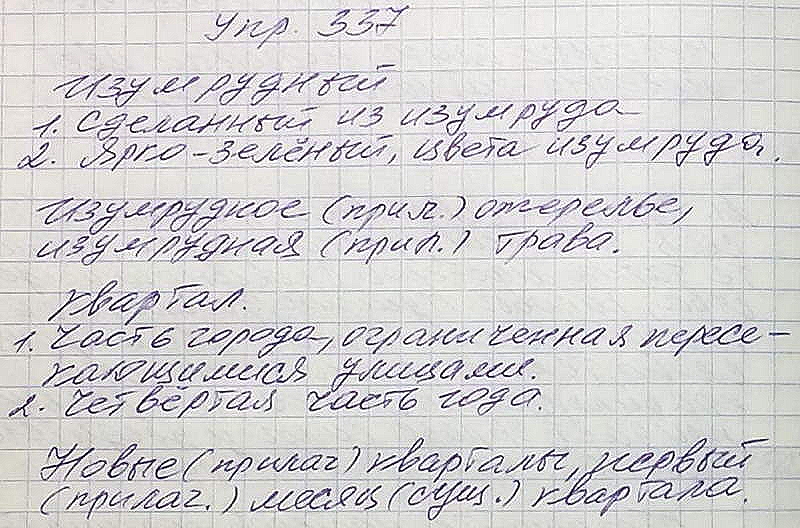 Упр. 337
Изумрудный
1. Сделанный из изумруда
2. Ярко-зелёный, цвета изумруда.
Изумрудное (прил.) ожерелье,
изумрудная (прил.) трава.
Квартал.
1. Часть города, ограниченная пересе-
кающимися улицами.
2. Четвёртая часть года.
Новые (прилаг) кварталы, первый
(прилаг.) месяц (сущ.) квартала.